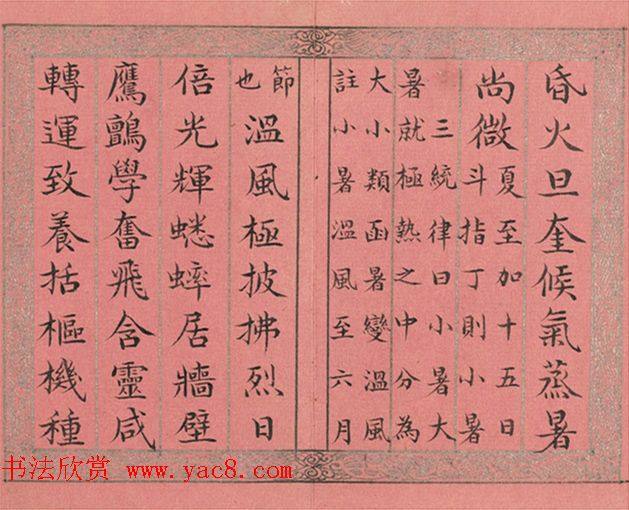 昏火旦奎候氣蒸暑
尚微夏至加十五日
斗指丁則小暑
三統律曰小暑大
暑就極熱之中分為
大小類函暑變溫風
註小暑溫風至六月
節也溫風極披拂烈日
倍光輝蟋蟀居牆壁
鷹鸇學奮飛含靈咸
轉運致養括樞機種
书法欣赏 www.yac8.com